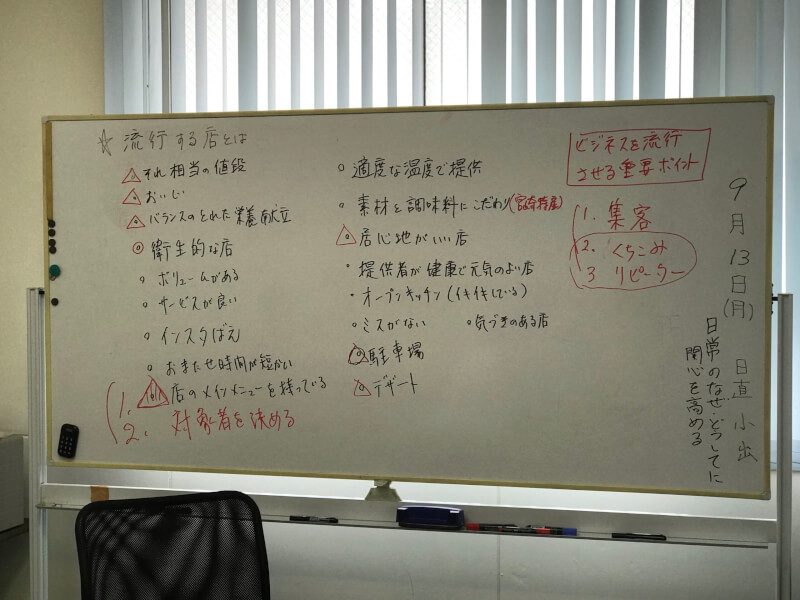 ☆ 流行する店とは
それ相当の値段
おいしい
バランスのとれた栄養献立
衛生的な店
ボリュームがある
サービスが良い
インスタばえ
おまたせ時間が短かい
1. 店のメインメニューを持っている
2. 対象者を決める
適度な温度で提供
素材と調味料にこだわり
居心地がいい店
提供者が健康で元気のよい店
オープンキッチン(イキイキしている)
ミスがない
気づきのある店
駐車場
デザート
ビジネスを流行
させる重要ポイント
1. 集客
2. くちこみ
3 リピーター
9月13日(月) 日直 小出
日常のなぜ・どうしてに
関心を高める